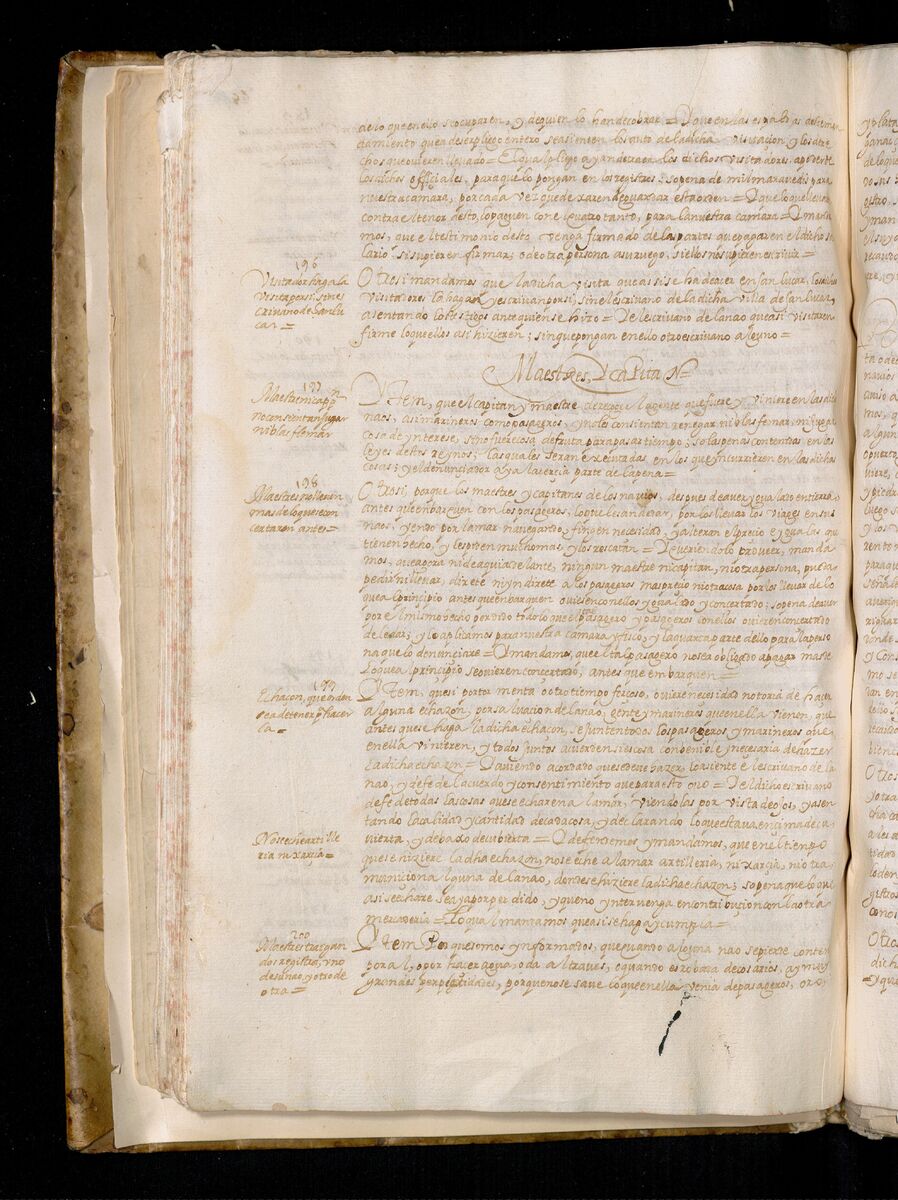 de lo que en ello se ocuparen, y de quien lo han de cobrar = Y que en las espaldas del
damiento que a des el pliego entero se asienten lo suto de la dicha visitacion y los dere
chos que ovieren llevado = El qual pliego ayan de traer los dichos visitadores, a poder de
los dichos officiales, para que lo pongan en los registros; so pena de mil maravedis para
nuestra camara, por cada vez que dexaren de guardar esta orden = Y que lo que llevaren
contra el tenor desto, lo paguen con el quatro tanto, para la nuestra camara = Y manda
mos, que el testimonio desto venga firmado de las partes que pagaren el dicho sa
lario, si supieren firmar; o de otra persona a su ruego, si ellos no supieren escrivir =
196
Visitador haga la
visita por si, sin es
crivano de Sanlu
car =
Otrosi mandamos que la dicha visita que asi se ha de acer en sanlucar, los dichos
visitadores la hagan y escrivan por si; sin el escrivano de la dicha villa de sanlucar,
asentando los testigos ante quien se hizo = Y el escrivano de la nao que asi visitaren
firme lo que ellos asi hizieren; sin que pongan en ello otro escrivano alguno =
Maestres, Y capitan
197
Maestre ni capp.n
no consientan jugar
ni blasfemar
Ytem, que el capitan y maestre de toda la gente que fuere y viniere en las dichas
naos, asi marineros como pasageros, y no les consientan renegar ni blasfemar, ni jugar
cosa de ynterese, sino fuere cosa de fruta para pasar tiempo; so las penas contenidas en las
leyes destos reynos; las quales seran executadas en los que incurrieren en las dichas
cosas; y el denunciador aya la tercia parte de la pena =
198
Maestres no lleven
mas de lo que se con
certaron antes =
Otrosi, porque los maestres y capitanes de los navios, despues de aver ygualado en tierra
antes que enbarquen con los pasageros, lo que les an de dar, por los llevar los viages en sus
naos, y endo por la mar navegando, fingen necesidad, y alteran el precio e ygualas que
tienen hecho, y les piden mucho mas, y los rescatan = Y queriendolo proveer, manda
mos, que agora ni de aqui adelante, ningun maestre ni capitan, ni otra persona, pueda
pedir ni llevar, direte ni yndirete a los pasageros mas precio ni otra cosa por los llevar de lo
que al principio antes que enbarquen ovieren con ellos ygualado y concertado; so pena de aver
por el mismo hecho perdido todo lo que el tal pasagero y pasageros con ellos ovieren concertado
de le dar; y lo aplicamos para nuestra camara y fisco, y la quarta parte dello para la perso
na que lo denunciare = Y mandamos, que el tal pasagero no ser obligado a pagar mas de
lo que a principio se ovieren concertado, antes que embarquen =
199
Echaçon, que orden
se a de tener p.a hacer
la =
Ytem, que si por tormenta o otro tiempo forçoso, oviere necesidad notoria de hacer
alguna echazon, por salvacion de la nao, gente y marineros que en ella vienen, que
antes que se haga la dicha echaçon, se junten todos los pasageros y marineros que
en ella vinieren, y todos juntos acuerden si es cosa convenible y necesaria de hazer
la dicha echazon = Y aviendo acordado que se deve hazer, lo asiente el escrivano de la
nao, y de fe del acuerdo y consentimiento que para esto ovo = Y el dicho escrivano
de fe de todas las cosas que se echaren a la mar, viendolas por vista de ojos, y asen
tando la calidad y cantidad de cada cosa, y declarando lo que estava encima de cu
vierta, y debaxo de cubierta = Y defendemos y mandamos, que en el tiempo
No se eche artille
ria ni xarcia =
que se hiziere la dha echazon, no se eche a la mar artilleria, ni xarçia, ni otra
municion alguna de la nao, donde se hiziere la dicha echazon; so pena que lo que
asi se echare sea ya por perdido, y que no yntervenga en contribucion con la otra
mercaderia = Lo qual mandamos que asi se haga y cumpla =
200
Maestres traygan
dos registros, uno
de su nao, y otro de
otra =
Ytem Porque somos ynformados, que quando alguna nao se pierde con tem
poral, o por hacer agua, o da al traves, o quando es robada de cosarios, ay muy
grandes perplexidades, porque no se save lo que en ella venia de pasageros, oro,